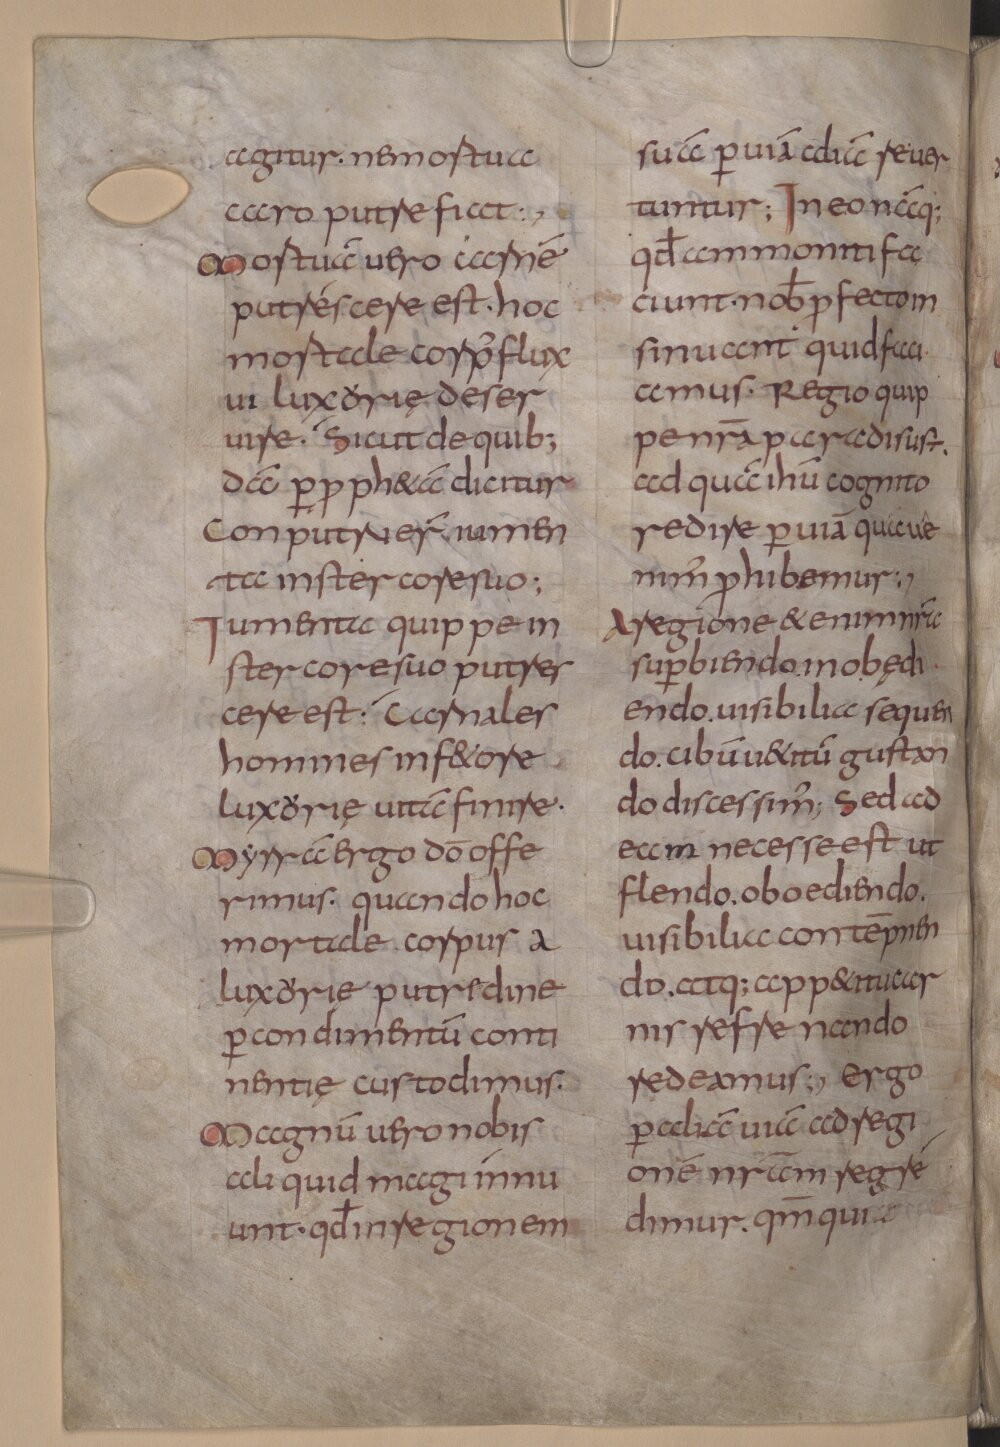 agitur. ne mortua
caro putrefiat:,
Mortuā uero carnē
putrescere est. hoc
mortale corp' flux
ui luxorię deser
uire. Sicut de quib;
dā ꝑ ꝓph&ā dicitur
Conputruer̄ iumen
ta in stercore suo;
Iumenta quippe in
stercore suo putres
cere est. Carnales
homines in f&ore
luxorię uitā finire.
Myrrā ergo dō offe
rimus. quando hoc
mortale corpus a
luxorie putredine
ꝑ condimentū conti
nentię custodimus.
Magnū uero nobis
aliquid magi innu
unt. qđ in regionem
suā ꝑ uiā aliā reuer
tuntur; In eo nāq;
qđ ammoniti fa
ciunt. nob̄ ꝓfecto in
sinuant quid faci
amus. Regio quip
pe nrā paradisus ē.
ad quā ihū cognito
redire ꝑ uiā qua ue
nim̄ ꝓhibemur:,
A regione &enim nrā
sup̄biendo. inobędi
endo. uisibilia sequen
do. cibū u&itū gustan
do discessim̄; Sed ad
eam necesse est ut
flendo. oboediendo.
uisibilia contēpnen
do. atq; app&itū car
nis refrenando
redeamus:, Ergo
ꝑ aliā uiā ad regi
onē nrām regre
dimur. qm̄ qui a